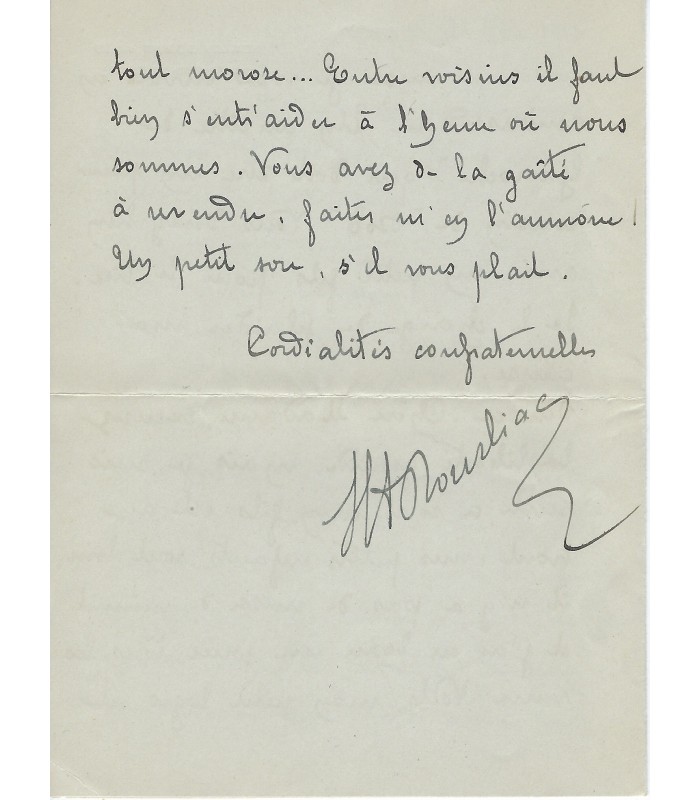 tout morose... Entre voisins il faut
bien s'entr'aider à l'heure où nous
sommes. Vous avez de la gaîté
à revendre, faites m'en l'aumône!
Un petit sou, s'il vous plait.
Cordialités confraternelles